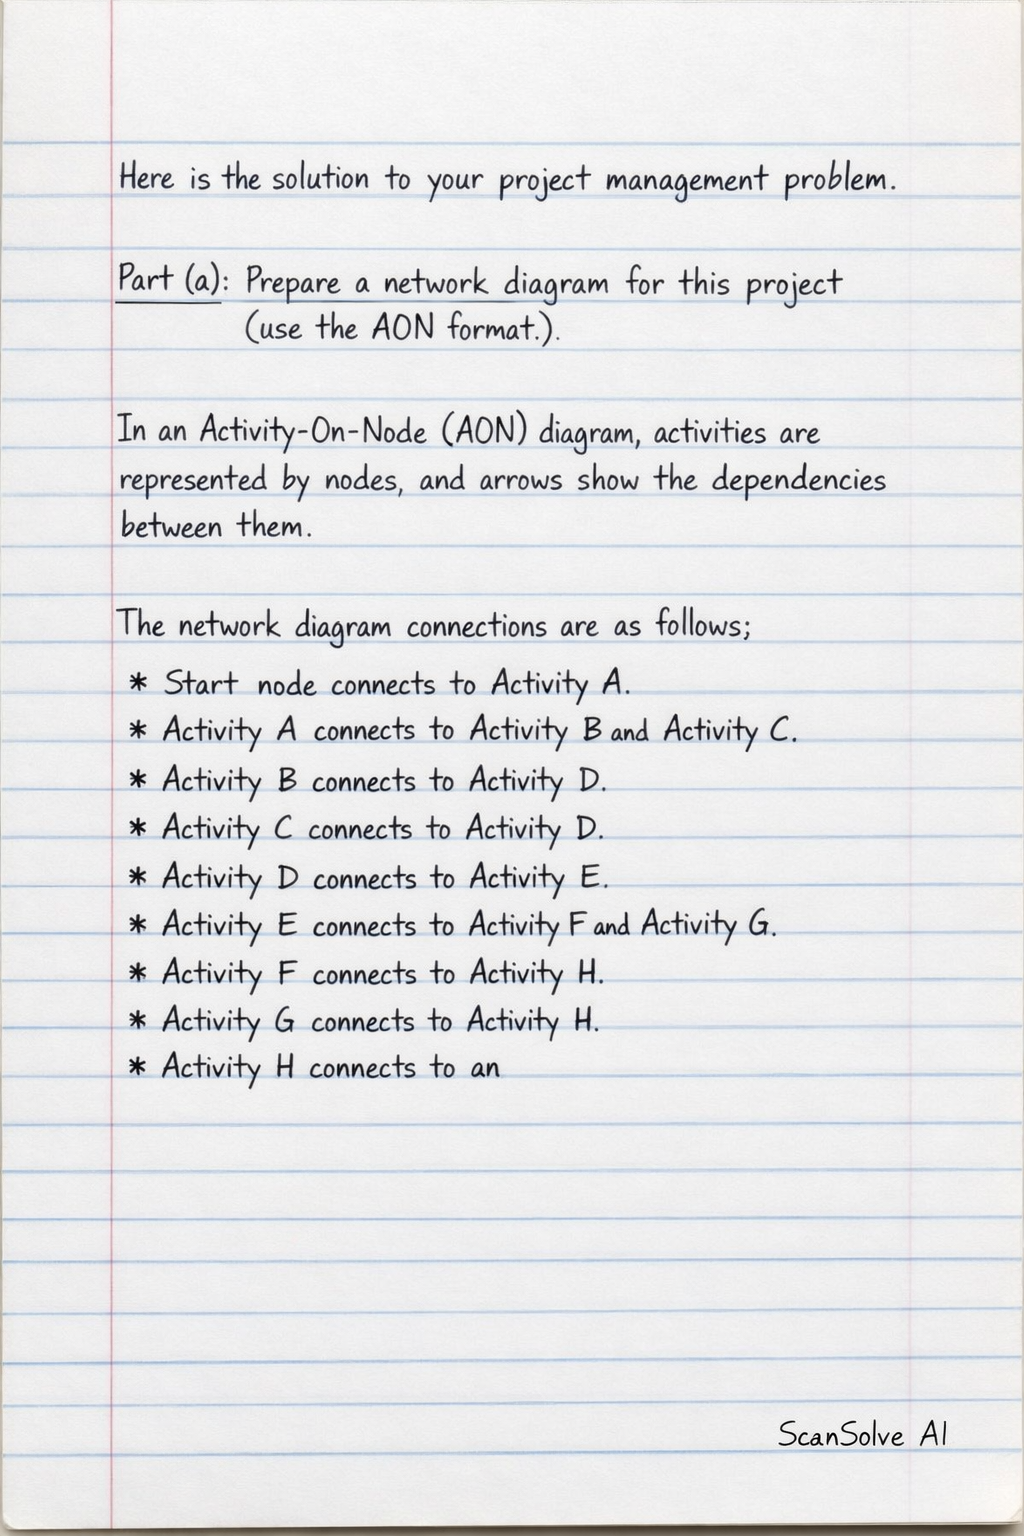 Here is the solution to your project management problem.
Part (a): Prepare a network diagram for this project
(use the AON format.).
In an Activity-On-Node (AON) diagram, activities are
represented by nodes, and arrows show the dependencies
between them.
The network diagram connections are as follows;
* Start node connects to Activity A.
* Activity A connects to Activity B and Activity C.
* Activity B connects to Activity D.
* Activity C connects to Activity D.
* Activity D connects to Activity E.
* Activity E connects to Activity F and Activity G.
* Activity F connects to Activity H.
* Activity G connects to Activity H.
* Activity H connects to an
ScanSolve AI